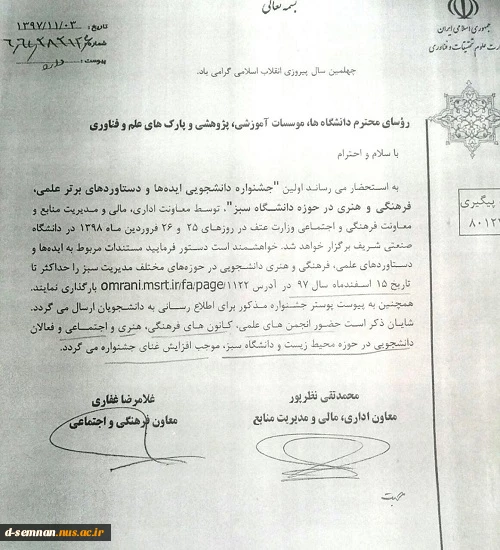 بسمه تعالی
جمهوری اسلامی ایران
وزارت علوم تحقیقات و فناوری
تاریخ: ۱۳۹۷/۱۱/۰۳
شماره:
پیوست: دارد
چهلمین سال پیروزی انقلاب اسلامی گرامی باد.
رؤسای محترم دانشگاه ها، موسسات آموزشی، پژوهشی و پارک های علم و فناوری
با سلام و احترام
به استحضار می رساند اولین "جشنواره دانشجویی ایده‌ها و دستاوردهای برتر علمی،
فرهنگی و هنری در حوزه دانشگاه سبز"، توسط معاونت اداری، مالی و مدیریت منابع و
معاونت فرهنگی و اجتماعی وزارت عتف در روزهای ۲۵ و ۲۶ فروردین ماه ۱۳۹۸ در دانشگاه
صنعتی شریف برگزار خواهد شد. خواهشمند است دستور فرمایید مستندات مربوط به ایده‌ها و
دستاوردهای علمی، فرهنگی و هنری دانشجویی در حوزه‌های مختلف مدیریت سبز را حداکثر تا
تاریخ ۱۵ اسفندماه سال ۹۷ در آدرس omrani.msrt.ir/fa/page/۱۱۲۲ بارگذاری نمایند.
همچنین به پیوست پوستر جشنواره مذکور برای اطلاع رسانی به دانشجویان ارسال می گردد.
شایان ذکر است حضور انجمن های علمی، کانون های فرهنگی، هنری و اجتماعی و فعالان
دانشجویی در حوزه محیط زیست و دانشگاه سبز، موجب افزایش غنای جشنواره می گردد.
پیگیری
۸۰۱۲۷
محمدتقی نظرپور
معاون اداری، مالی و مدیریت منابع
غلامرضا غفاری
معاون فرهنگی و اجتماعی
d-semnan.nus.ac.ir